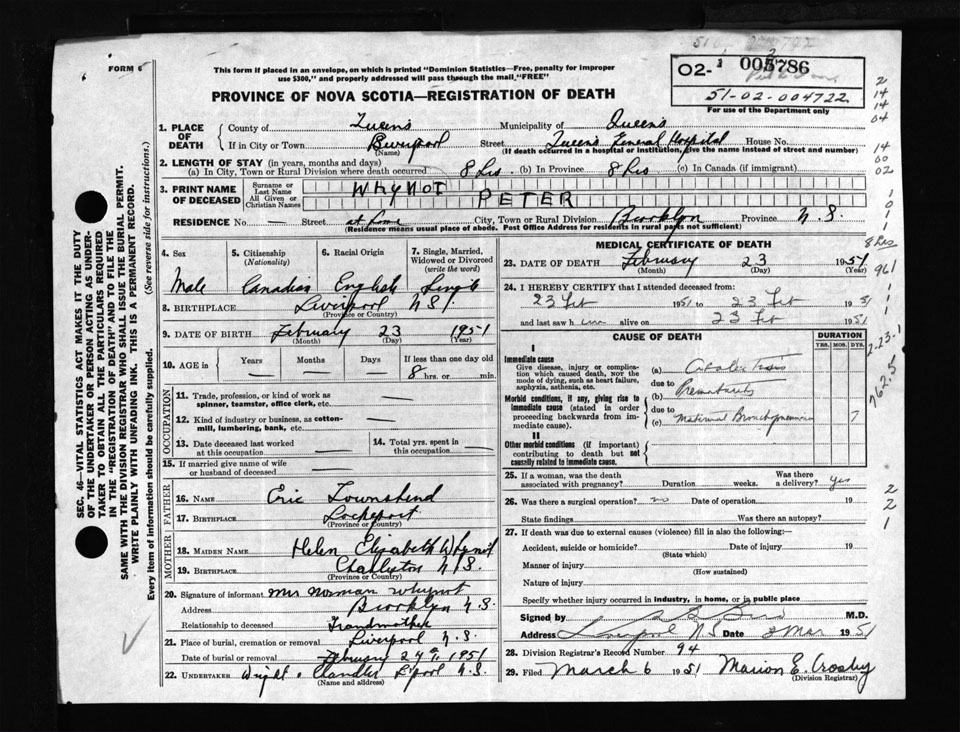 FORM 6
This form if placed in an envelope, on which is printed "Dominion Statistics—Free, penalty for improper
use $300," and properly addressed will pass through the mail, "FREE"
PROVINCE OF NOVA SCOTIA—REGISTRATION OF DEATH
02- 005786
51-02-004722
For use of the Department only
1. PLACE OF DEATH County of Queens Municipality of Queens
If in City or Town Liverpool (Name) Street Queens General Hospital House No.
(If death occurred in a hospital or institution, give the name instead of street and number)
2. LENGTH OF STAY (in years, months and days)
(a) In City, Town or Rural Division where death occurred 8 hrs. (b) In Province 8 hrs (c) In Canada (if immigrant)
3. PRINT NAME OF DECEASED Surname or Last Name WHYNOT
All Given or Christian Names PETER
RESIDENCE No. — Street at home City, Town or Rural Division Brooklyn Province N.S.
(Residence means usual place of abode. Post Office Address for residents in rural parts not sufficient)
4. Sex 5. Citizenship (Nationality) 6. Racial Origin 7. Single, Married, Widowed or Divorced (write the word)
Male Canadian English Single
8. BIRTHPLACE Liverpool N.S.
(Province or Country)
9. DATE OF BIRTH February 23 1951
(Month) (Day) (Year)
10. AGE in Years Months Days If less than one day old
— — — 8 hrs. or min.
OCCUPATION
11. Trade, profession, or kind of work as spinner, teamster, office clerk, etc. —
12. Kind of industry or business, as cotten-mill, lumbering, bank, etc. —
13. Date deceased last worked at this occupation — 14. Total yrs. spent in this occupation —
15. If married give name of wife or husband of deceased —
FATHER
16. NAME Eric Townshend
17. BIRTHPLACE Lockeport
(Province or Country)
MOTHER
18. MAIDEN NAME Helen Elizabeth Whynot
19. BIRTHPLACE Charleston N.S.
(Province or Country)
20. Signature of informant Mrs Norman Whynot
Address Brooklyn N.S.
Relationship to deceased Grandmother
21. Place of burial, cremation or removal Liverpool N.S.
Date of burial or removal February 24th 1951
22. UNDERTAKER Wright & Chandler L'pool N.S.
(Name and address)
MEDICAL CERTIFICATE OF DEATH
23. DATE OF DEATH February 23 1951
(Month) (Day) (Year)
24. I HEREBY CERTIFY that I attended deceased from:
23 Feb 1951 to 23 Feb 1951
and last saw h im alive on 23 Feb 1951
CAUSE OF DEATH DURATION
YRS. MOS. DYS.
I
Immediate cause
Give disease, injury or complication which caused death, NOT the mode of dying, such as heart failure, asphyxia, asthenia, etc.
(a) Atelectasis
due to
Morbid conditions, if any, giving rise to immediate cause (stated in order proceeding backwards from immediate cause).
(b) Prematurity
due to
(c) Maternal Bronchopneumonia 7
II
Other morbid conditions (if important) contributing to death but not causally related to immediate cause.
25. If a woman, was the death associated with pregnancy? Duration weeks. Was there a delivery? yes
26. Was there a surgical operation? no Date of operation 19
State findings Was there an autopsy?
27. If death was due to external causes (violence) fill in also the following:
Accident, suicide or homicide? Date of injury 19
(State which)
Manner of injury
(How sustained)
Nature of injury
Specify whether injury occurred in industry, in home, or in public place
Signed by M.D.
Address Liverpool N.S. Date 2 Mar 1951
28. Division Registrar's Record Number 94
29. Filed March 6 1951 Marion E. Crosby
(Division Registrar)
SEC. 46—VITAL STATISTICS ACT MAKES IT THE DUTY
OF THE UNDERTAKER OR PERSON ACTING AS UNDER-
TAKER TO OBTAIN ALL THE PARTICULARS REQUIRED
IN THE "REGISTRATION OF DEATH" AND TO FILE THE
SAME WITH THE DIVISION REGISTRAR WHO SHALL ISSUE THE BURIAL PERMIT.
WRITE PLAINLY WITH UNFADING INK. THIS IS A PERMANENT RECORD.
Every item of information should be carefully supplied. (See reverse side for instructions.)
2
14
14
04
14
00
02
1
0
1
1
8 hrs
961
1
1
1
2-23-1
762.5
2
2
1